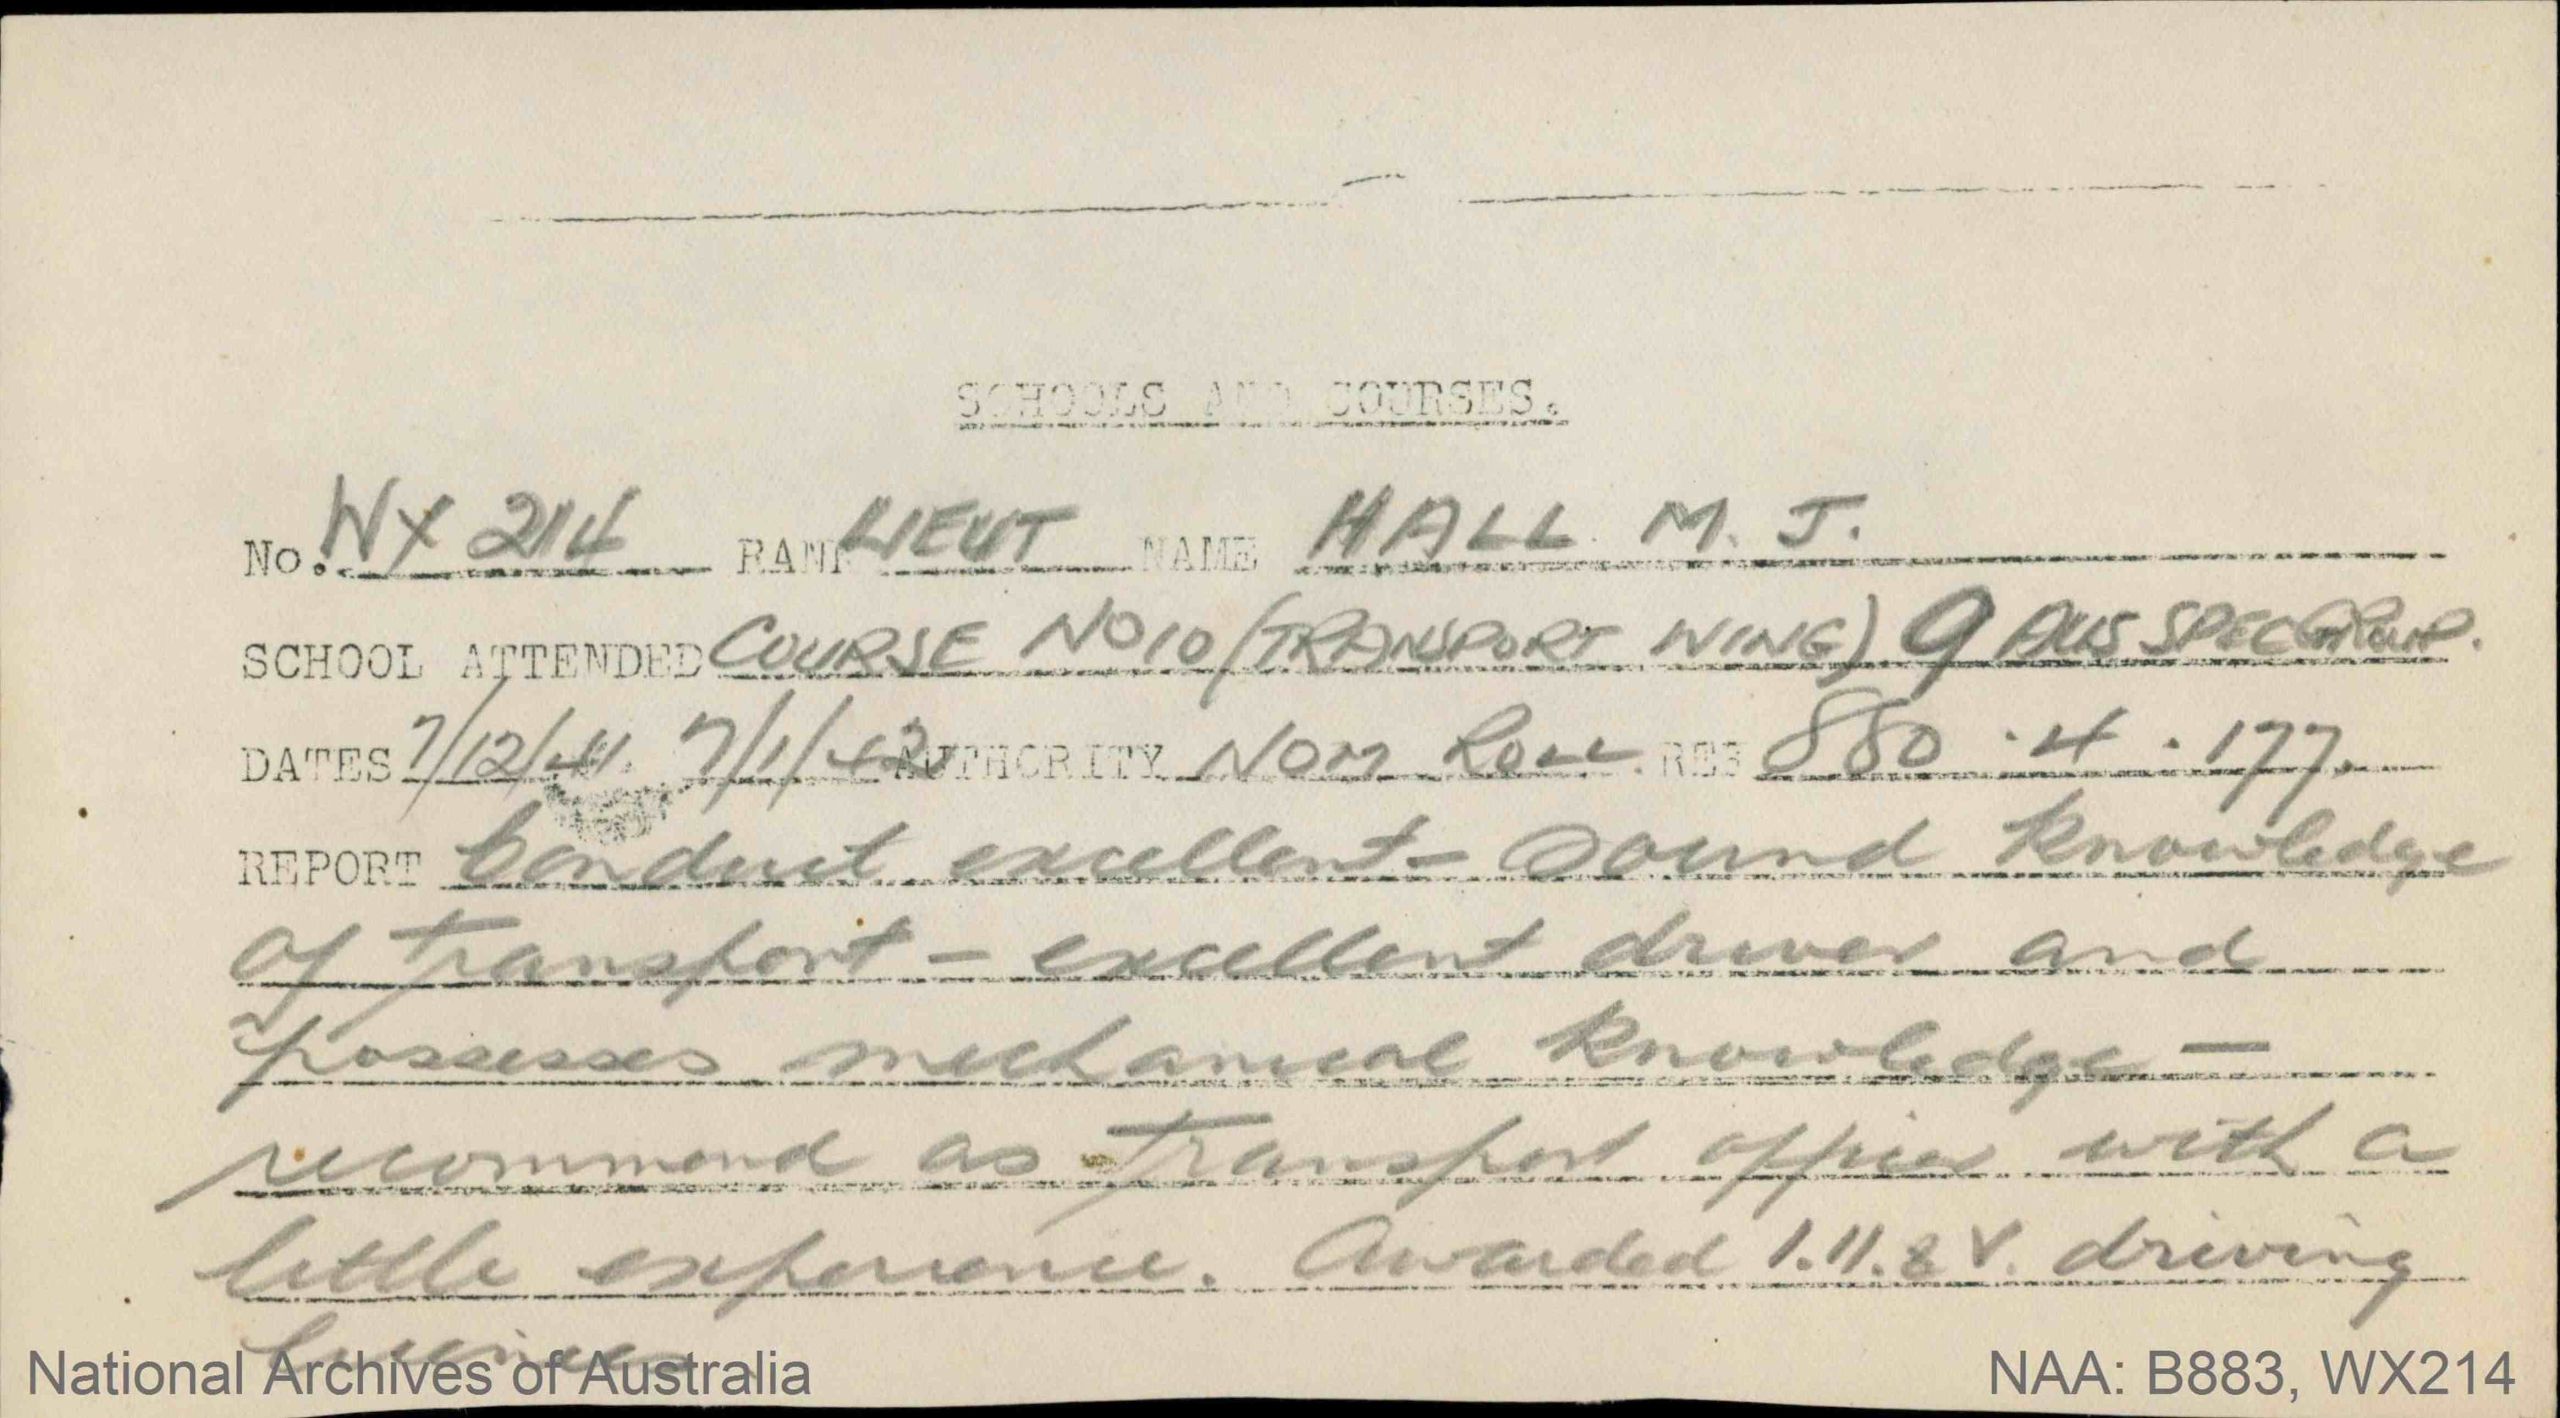 SCHOOLS AND COURSES.
No. WX 214 RANK LIEUT NAME HALL M. J.
SCHOOL ATTENDED COURSE NO 10 (TRANSPORT WING) 9 AUS SPEC GROUP.
DATES 7/12/41 7/1/42 AUTHORITY NOM ROLL REF 880.4.177.
REPORT Conduct excellent - Sound knowledge
of transport - excellent driver and
possesses mechanical knowledge -
recommend as transport officer with a
little experience. Awarded 1.11. & V. driving
licences
National Archives of Australia NAA: B883, WX214